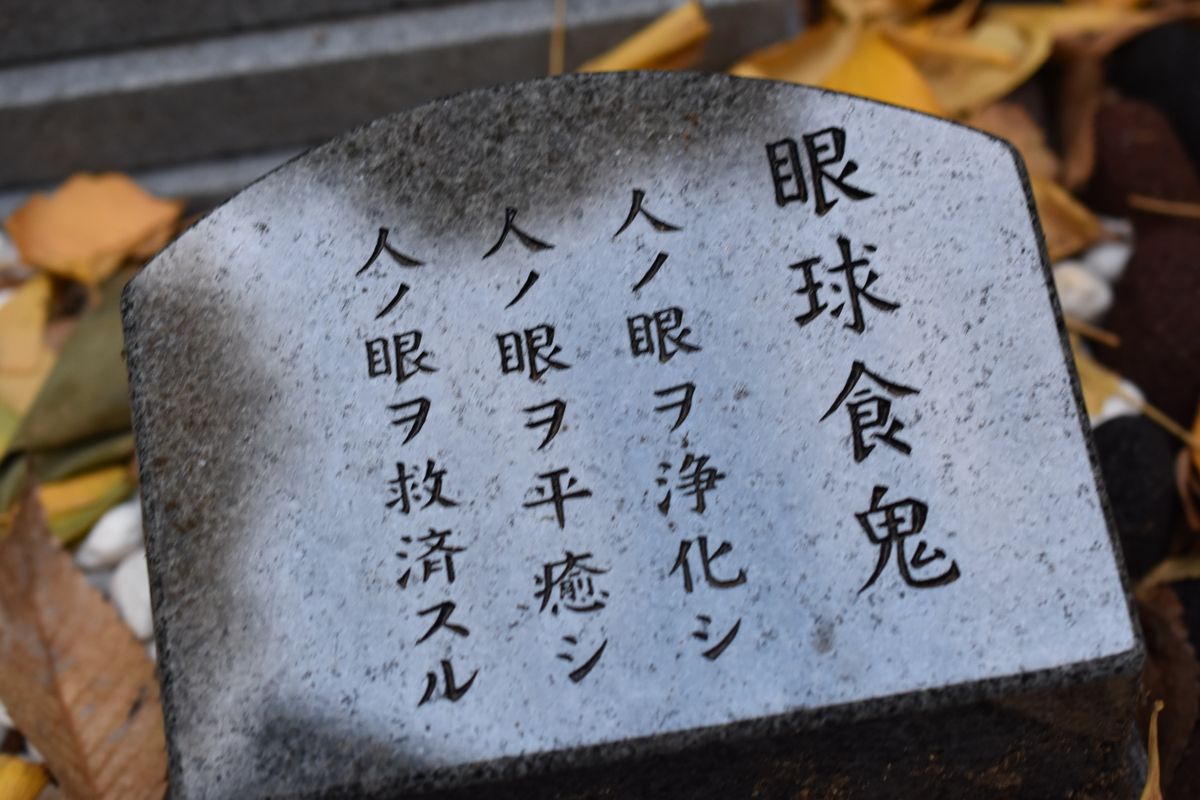 眼球食鬼
人ノ眼ヲ浄化シ
人ノ眼ヲ平癒シ
人ノ眼ヲ救済スル